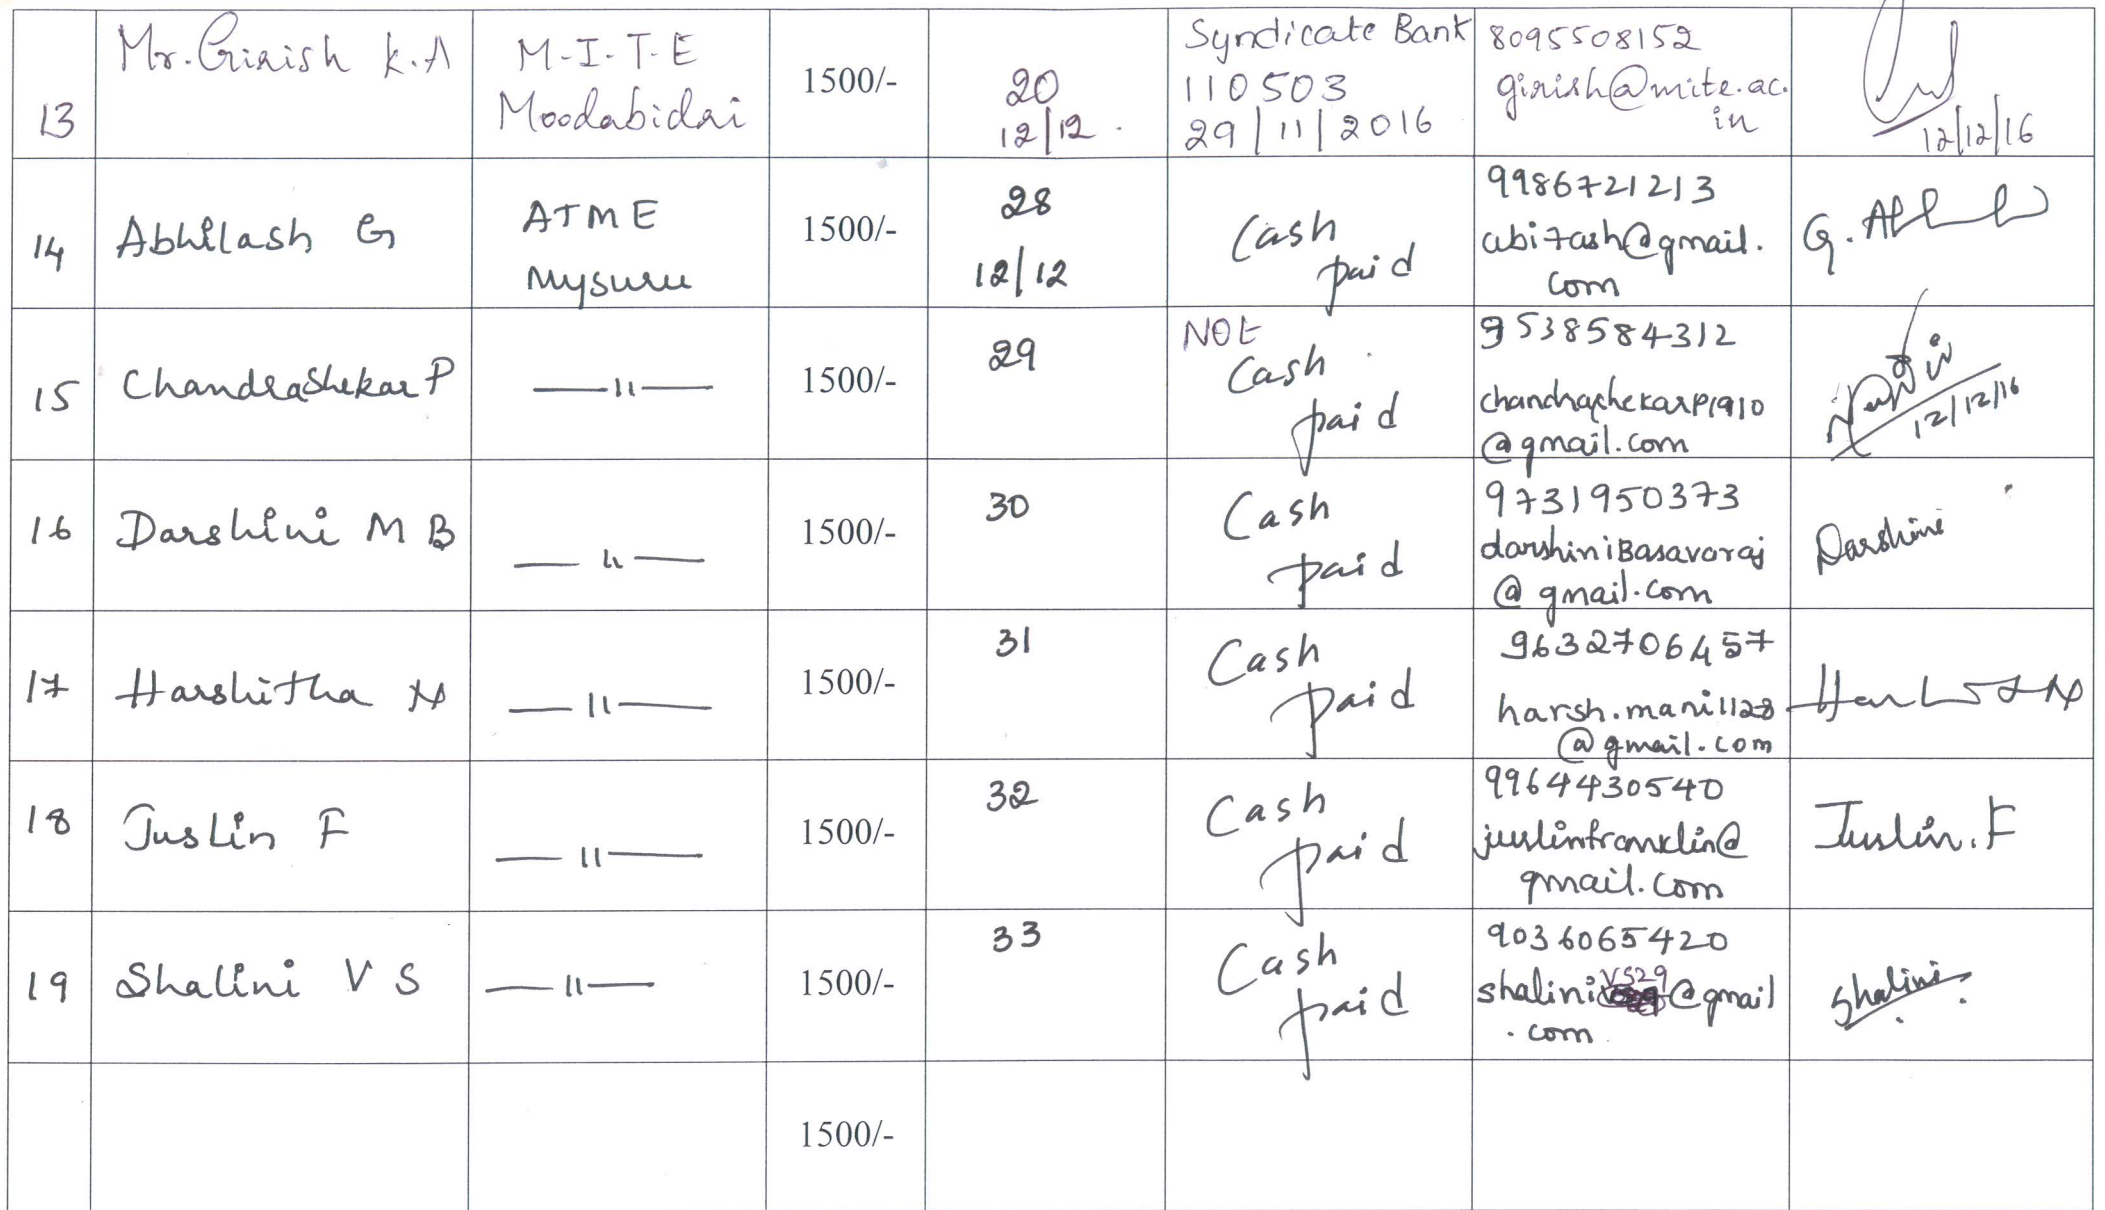 13
Mr. Girish K.A
M-I-T-E
Moodabidai
1500/-
20
12/12.
Syndicate Bank
110503
29/11/2016
8095508152
girish@mite.ac.
in
12/12/16
14
Abhilash G
ATME
Mysuru
1500/-
28
12/12
Cash
paid
9986721213
abi7ash@gmail.
com
15
Chandrashekar P
—"—
1500/-
29
NOE
Cash
paid
9538584312
chandrashekarp1910
@gmail.com
12/12/16
16
Darshini M B
—"—
1500/-
30
Cash
paid
9731950373
darshiniBasavaraj
@gmail.com
Darshini
17
Harshitha N
—"—
1500/-
31
Cash
paid
9632706457
harsh.mani1128
@gmail.com
18
Justin F
—"—
1500/-
32
Cash
paid
9964430540
justinfranklin@
gmail.com
Justin.F
19
Shalini V S
—"—
1500/-
33
Cash
paid
9036065420
shalinivs29@gmail
.com
Shalini
1500/-